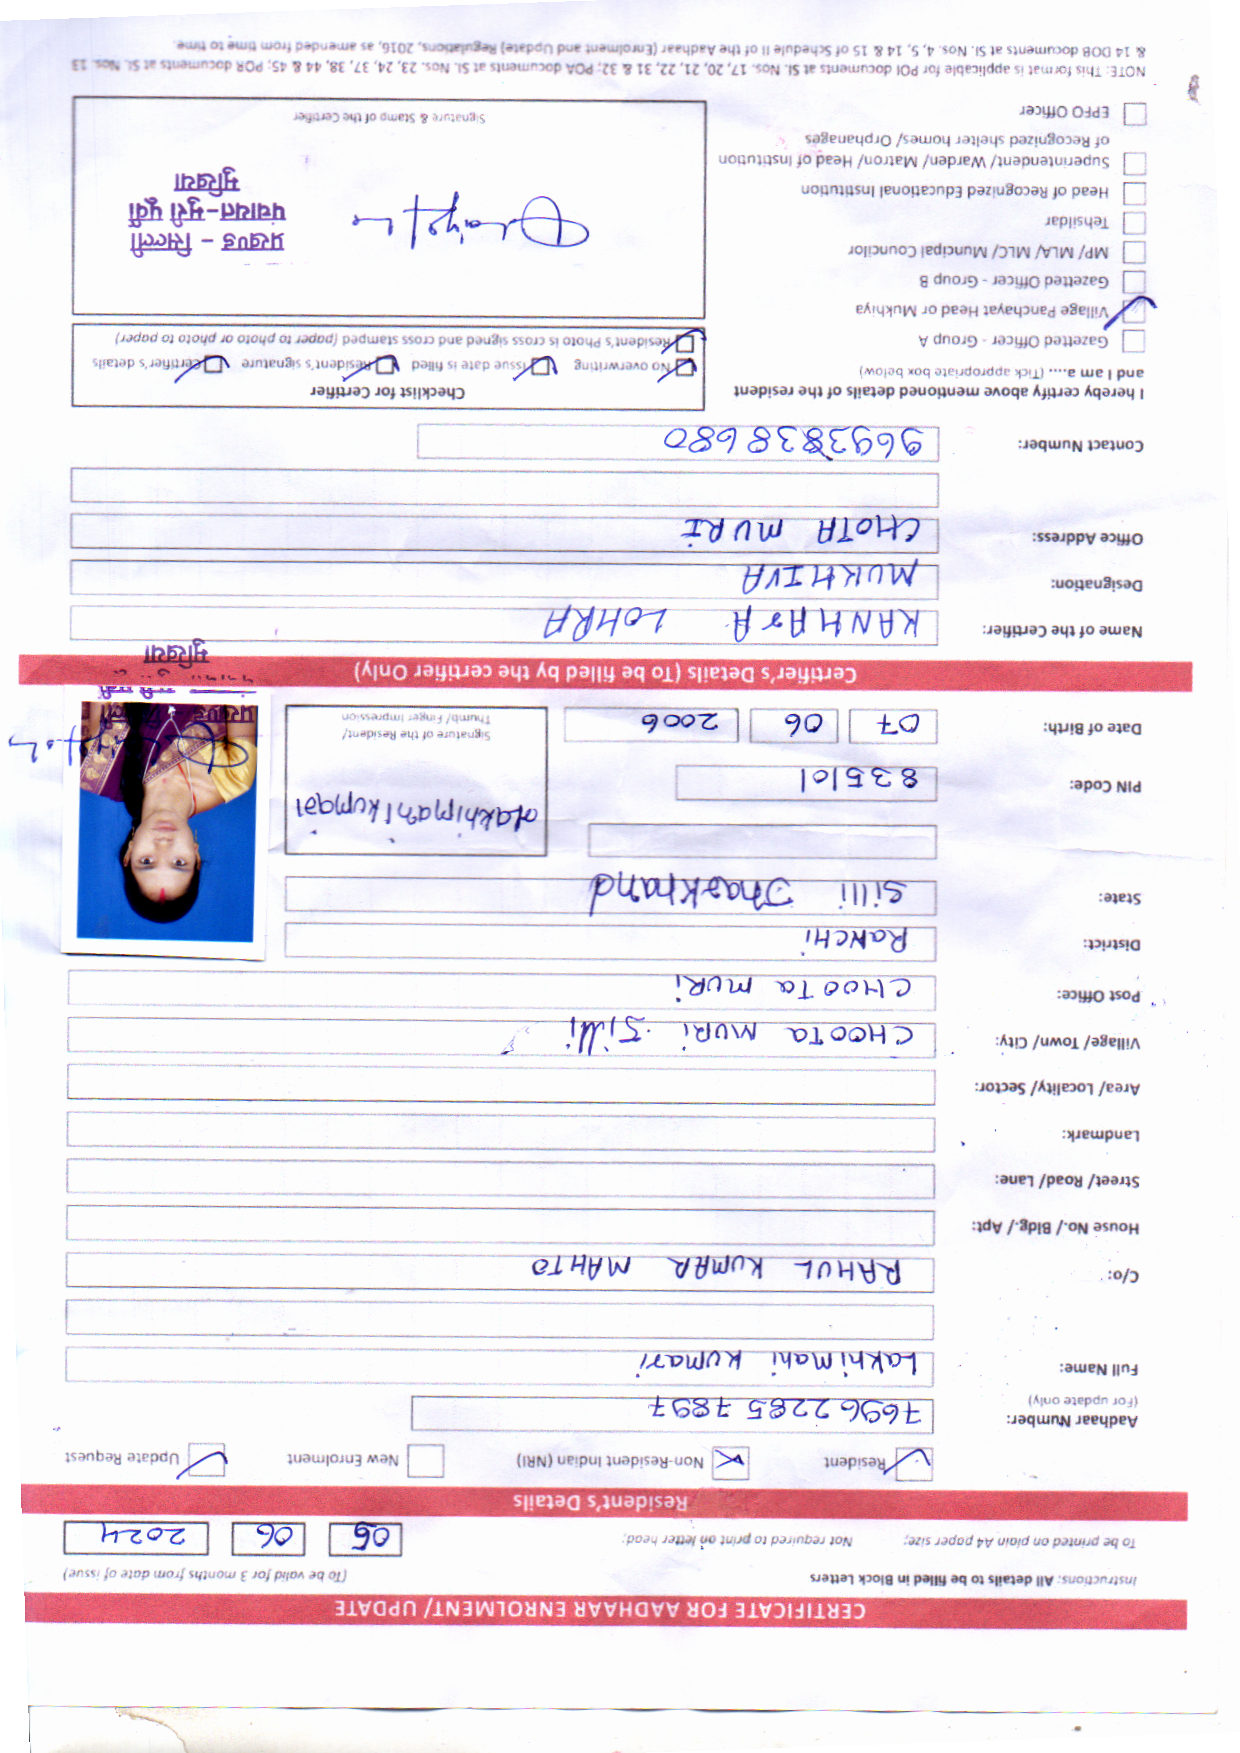 CERTIFICATE FOR AADHAAR ENROLMENT/ UPDATE
Instructions: All details to be filled in Block Letters
(To be valid for 3 months from date of issue)
To be printed on plain A4 paper size; Not required to print on letter head;
06 06 2024
Resident's Details
Resident Non-Resident Indian (NRI) New Enrolment Update Request
Aadhaar Number: 769622857897
(For update only)
Full Name: Lakhimani kumari
C/o: RAHUL KUMAR MAHTO
House No./ Bldg./ Apt:
Street/ Road/ Lane:
Landmark:
Area/ Locality/ Sector:
Village/ Town/ City: CHOOTA MURi Silli
Post Office: CHOOTA MURi
District: RaNCHi
State: Silli Jharkhand
PIN Code: 835101
Date of Birth: 07 06 2006
Lakhimani kumari
Signature of the Resident/
Thumb/ Finger Impression
Certifier's Details (To be filled by the certifier Only)
मुखिया
Name of the Certifier: KANHAYA LOHRA
Designation: MUKHIYA
Office Address: CHOTA MURI
Contact Number: 9693838680
I hereby certify above mentioned details of the resident
and I am a.... (Tick appropriate box below)
Gazetted Officer - Group A
Village Panchayat Head or Mukhiya
Gazetted Officer - Group B
MP/ MLA/ MLC/ Muncipal Councilor
Tehsildar
Head of Recognized Educational Institution
Superintendent/ Warden/ Matron/ Head of Institution
of Recognized shelter homes/ Orphanages
EPFO Officer
Checklist for Certifier
No overwriting Issue date is filled Resident's signature Certifier's details
Resident's Photo is cross signed and cross stamped (paper to photo or photo to paper)
मुखिया
पंचायत-मुरी पूर्वी
प्रखण्ड - सिल्ली
Signature & Stamp of the Certifier
NOTE: This format is applicable for POI documents at Sl. Nos. 17, 20, 21, 22, 31 & 32; POA documents at Sl. Nos. 23, 24, 37, 38, 44 & 45; POR documents at Sl. Nos. 13
& 14 DOB documents at Sl. Nos. 4, 5, 14 & 15 of Schedule II of the Aadhaar (Enrolment and Update) Regulations, 2016, as amended from time to time.